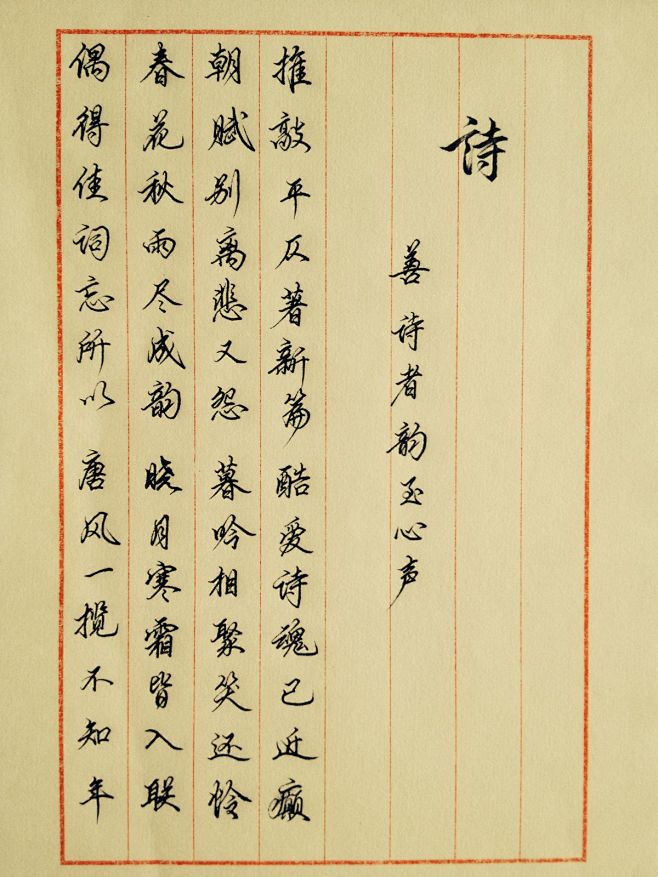 詩
善诗者韵至心声
推敲平仄著新篇 酷爱诗魂已近癫
朝赋别离悲又怨 暮吟相聚笑还怜
春花秋雨尽成韵 晓月寒霜皆入联
偶得佳词忘所以 唐风一揽不知年